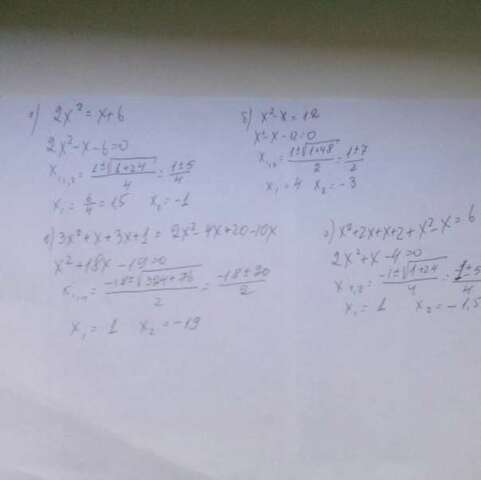 а) 2x² = x+6
2x² - x - 6 = 0
x₁,₂ = (1±√(1+24))/4 = (1±5)/4
x₁ = 6/4 = 1,5 x₂ = -1
б) x² - x = 12
x² - x - 12 = 0
x₁,₂ = (1±√(1+48))/2 = (1±7)/2
x₁ = 4 x₂ = -3
в) 3x² + x + 3x + 1 = 2x² - 4x + 20 - 10x
x² + 18x - 19 = 0
x₁,₂ = (-18±√(324+76))/2 = (-18±20)/2
x₁ = 1 x₂ = -19
г) x² + 2x + x + 2 + x² - x = 6
2x² + x - 4 = 0
x₁,₂ = (-1±√(1+24))/4 = (1±5)/4
x₁ = 1 x₂ = -1,5